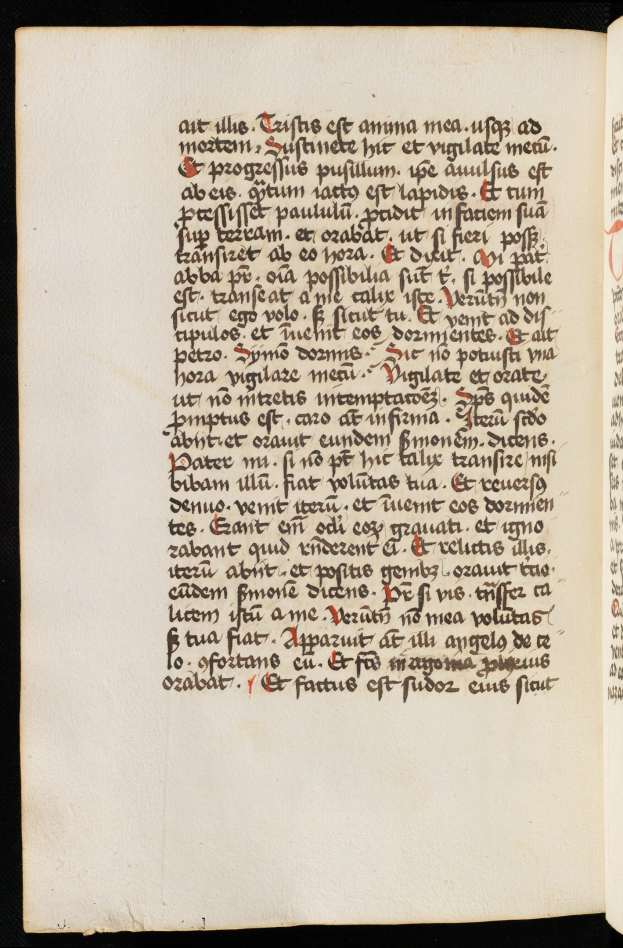 ait illis. Tristis est anima mea. usqꝫ ad
mortem. Sustinete hic et vigilate mecū.
Et progressus pusillum. ip̄e avulsus est
ab eis. qͣtum iactꝰ est lapidis. Et cum
ꝓcessisset paululū. ꝓcidit in faciem suā
sup̄ terram. et orabat. ut si fieri possꝫ
transiret ab eo hora. Et dixit. Mi pat̄
abba pr̄. oīa possibilia sūt t̄. si possibile
est. transeat a me calix iste. Verūtn̄ non
sicut ego volo. sꝫ sicut tu. Et venit ad dis
cipulos. et īuenit eos dormientes. Et ait
petro. Symō dormis. Sic nō potuisti vna
hora vigilare mecū. Vigilate et orate
ut nō intretis in temptacōeꝫ. Sp̄s quidē
ꝓmptus est. caro at̄ infirma. Iterū scd̄o
abiit. et orauit eundem s̄monem. dicens.
Pater mi. si nō pt̄ hic calix transire nisi
bibam illū. fiat volūtas tua. Et reuersꝰ
denuo. venit iterū. et īuenit eos dormien
tes. Erant em̄ oc̄li eoꝝ grauati. et igno
rabant quid rn̄derent ei. Et relictis illis.
iterū abiit. et positis genibꝫ. orauit t̄cio.
eūdem s̄monē dicens. Pr̄ si vis. trā̄sfer ca
licem istū a me. Verūtn̄ nō mea volūtas
sꝫ tua fiat. Apparuit at̄ illi angelꝰ de ce
lo. ꝯfortans eū. Et fc̄s in agonia ꝓlixius
orabat. Et factus est sudor eius sicut